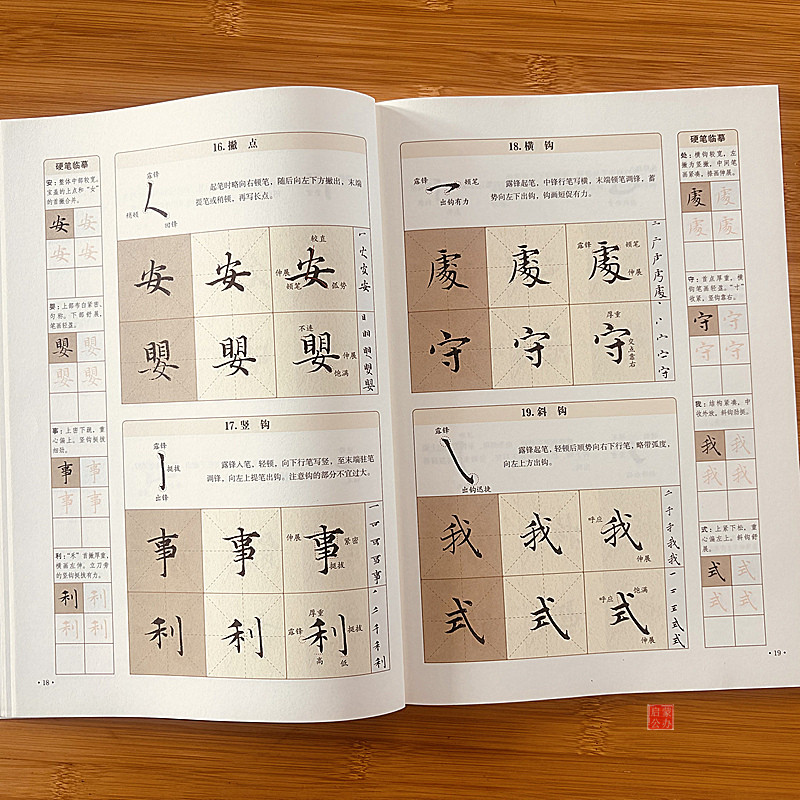 硬笔临摹
安：整体中部较宽，
宝盖的上点和“女”
的首撇合并。
安 安
安 安
婴：上部布白紧密、
匀称。下部舒展，
笔画轻盈。
嬰 嬰
嬰 嬰
事：上密下疏，重
心偏上，竖钩挺拔
细劲。
事 事
事 事
利：“禾”首撇厚重，
横画左伸。立刀旁
的竖钩挺拔有力。
利 利
利 利
·18·
16.撇 点
露锋
稍顿
回锋
起笔时略向右顿笔，随后向左下方撇出，末端
提笔或稍顿，再写长点。
安 安 安
较直
伸展
顿笔
弧势
嬰 嬰 嬰
不连
伸展
饱满
17.竖 钩
露锋
挺拔
出锋
露锋入笔，轻顿，向下行笔写竖，至末端驻笔
调锋，向左上提笔出钩。注意钩的部分不宜过大。
事 事 事
伸展
紧密
挺拔
利 利 利
厚重
露锋
挺拔
高
低
18.横 钩
露锋
顿笔
出钩有力
露锋起笔，中锋行笔写横，末端顿笔调锋，蓄
势向左下出钩，钩画短促有力。
處 處 處
露锋
顿笔
伸展
守 守 守
厚重
交点靠右
19.斜 钩
露锋
出钩迅捷
露锋起笔，轻顿后顺势向右下行笔，略带弧度，
向左上方出钩。
我 我 我
呼应
伸展
式 式 式
呼应
饱满
伸展
硬笔临摹
处：横钩较宽，左
撇为竖撇，中间笔
画紧凑，捺画伸展。
處 處
處 處
守：首点厚重，横
钩笔画轻盈。“寸”
收紧，竖钩靠右。
守 守
守 守
我：结构紧凑，中
收外放，斜钩劲挺。
我 我
我 我
式：上紧下松，重
心偏左上。斜钩舒
展。
式 式
式 式
·19·
启蒙
公办